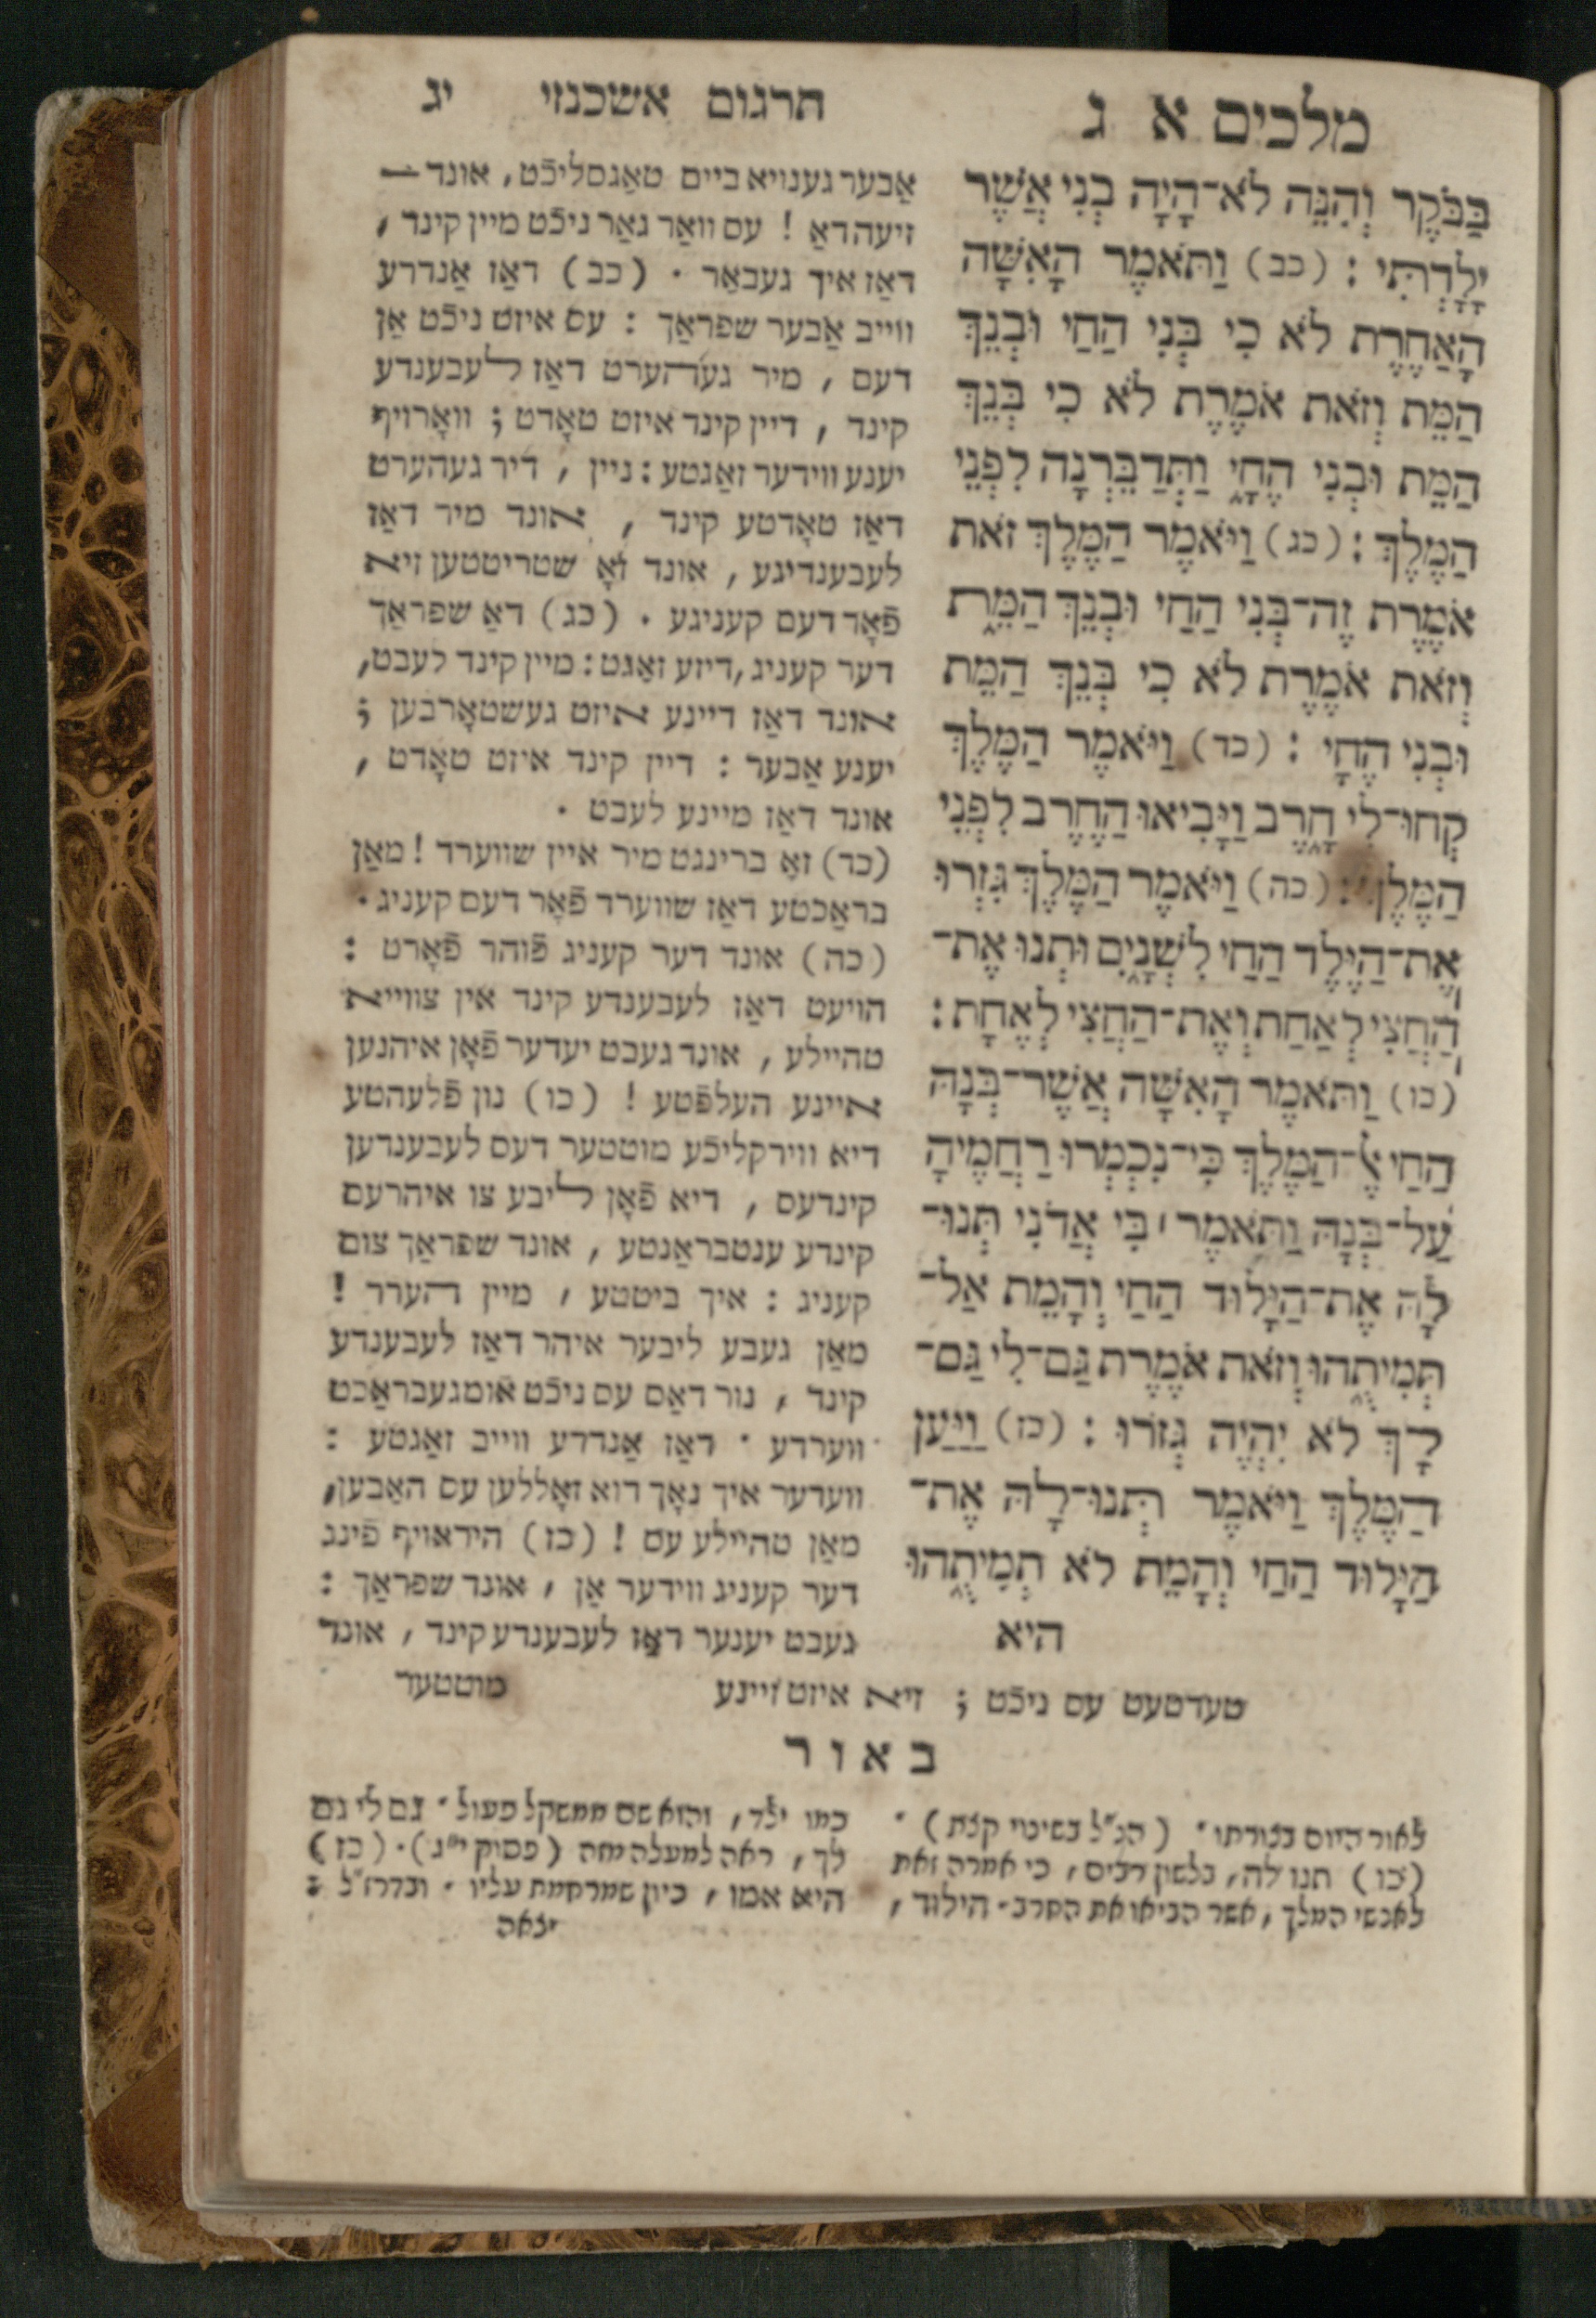 מלכים א ג
תרגום אשכנזי יג
בַּבֹּקֶר וְהִנֵּה לֹא־הָיָה בְנִי אֲשֶׁר
יָלָדְתִּי : (כב) וַתֹּאמֶר הָאִשָּׁה
הָאַחֶרֶת לֹא כִי בְּנִי הַחַי וּבְנֵךְ
הַמֵּת וְזֹאת אֹמֶרֶת לֹא כִי בְּנֵךְ
הַמֵּת וּבְנִי הֶחָי וַתְּדַבֵּרְנָה לִפְנֵי
הַמֶּלֶךְ : (כג) וַיֹּאמֶר הַמֶּלֶךְ זֹאת
אֹמֶרֶת זֶה־בְּנִי הַחַי וּבְנֵךְ הַמֵּת
וְזֹאת אֹמֶרֶת לֹא כִי בְּנֵךְ הַמֵּת
וּבְנִי הֶחָי : (כד) וַיֹּאמֶר הַמֶּלֶךְ
קְחוּ־לִי חָרֶב וַיָּבִיאוּ הַחֶרֶב לִפְנֵי
הַמֶּלֶךְ : (כה) וַיֹּאמֶר הַמֶּלֶךְ גִּזְרוּ
אֶת־הַיֶּלֶד הַחַי לִשְׁנָיִם וּתְנוּ אֶת־
הַחֲצִי לְאַחַת וְאֶת־הַחֲצִי לְאֶחָת :
(כו) וַתֹּאמֶר הָאִשָּׁה אֲשֶׁר־בְּנָהּ
הַחַי אֶל־הַמֶּלֶךְ כִּי־נִכְמְרוּ רַחֲמֶיהָ
עַל־בְּנָהּ וַתֹּאמֶר ׀ בִּי אֲדֹנִי תְּנוּ־
לָהּ אֶת־הַיָּלוּד הַחַי וְהָמֵת אַל־
תְּמִיתֻהוּ וְזֹאת אֹמֶרֶת גַּם־לִי גַּם־
לָךְ לֹא יִהְיֶה גְּזֹרוּ : (כז) וַיַּעַן
הַמֶּלֶךְ וַיֹּאמֶר תְּנוּ־לָהּ אֶת־
הַיָּלוּד הַחַי וְהָמֵת לֹא תְמִיתֻהוּ
היא
אַבער גענויא ביים טאַגסליכֿט, אונד
זיעהדאַ ! עס וואַר גאַר ניכֿט מיין קינד ,
דאַז איך געבאַר . (כב) דאַז אַנדרע
ווייב אַבער שפראַך : עס איזט ניכֿט אַן
דעם , מיר געהערט דאַז לעבענדע
קינד , דיין קינד איזט טאָדט ; וואָרויף
יענע ווידער זאַגטע : ניין , דיר געהערט
דאַז טאָדטע קינד , אונד מיר דאַז
לעבענדיגע , אונד זאָ שטריטטען זיא
פֿאָר דעם קעניגע . (כג) דאַ שפראַך
דער קעניג , דיזע זאַגט : מיין קינד לעבט,
אונד דאַז דיינע איזט געשטאָרבען ;
יענע אַבער : דיין קינד איזט טאָדט ,
אונד דאַז מיינע לעבט .
(כד) זאָ ברינגט מיר איין שווערד ! מאַן
בראַכטע דאַז שווערד פֿאָר דעם קעניג .
(כה) אונד דער קעניג פֿוהר פֿאָרט :
הויעט דאַז לעבענדע קינד אין צווייא
טהיילע , אונד געבט יעדער פֿאָן איהנען
איינע העלפֿטע ! (כו) נון פֿלעהטע
דיא ווירקליכֿע מוטטער דעס לעבענדען
קינדעס , דיא פֿאָן ליבע צו איהרעם
קינדע ענטבראַנטע , אונד שפראַך צום
קעניג : איך ביטטע , מיין הערר !
מאַן געבע ליבער איהר דאַז לעבענדע
קינד , נור דאַס עס ניכֿט אומגעבראַכט
ווערדע . דאַז אַנדרע ווייב זאַגטע :
ווערדער איך נאָך דוא זאָללען עס האַבען,
מאַן טהיילע עס ! (כז) היראויף פֿינג
דער קעניג ווידער אַן , אונד שפראַך :
געבט יענער דאַז לעבענדע קינד , אונד
טעדטעט עס ניכֿט ; זיא איזט זיינע מוטטער
באור
לאור היום בצורתו . (הנ"ל בשינוי קצת) .
(כו) תנו לה, בלשון רבים, כי אמרה זאת
לאנשי המלך, אשר הביאו את החרב . הילוד ,
כמו ילד, והוא שם ממשקל פעול . גם לי גם
לך, ראה למעלה מזה (פסוק י"ג) . (כז)
היא אמו , כיון שמרחמת עליו . ובדרז"ל :
יצאה